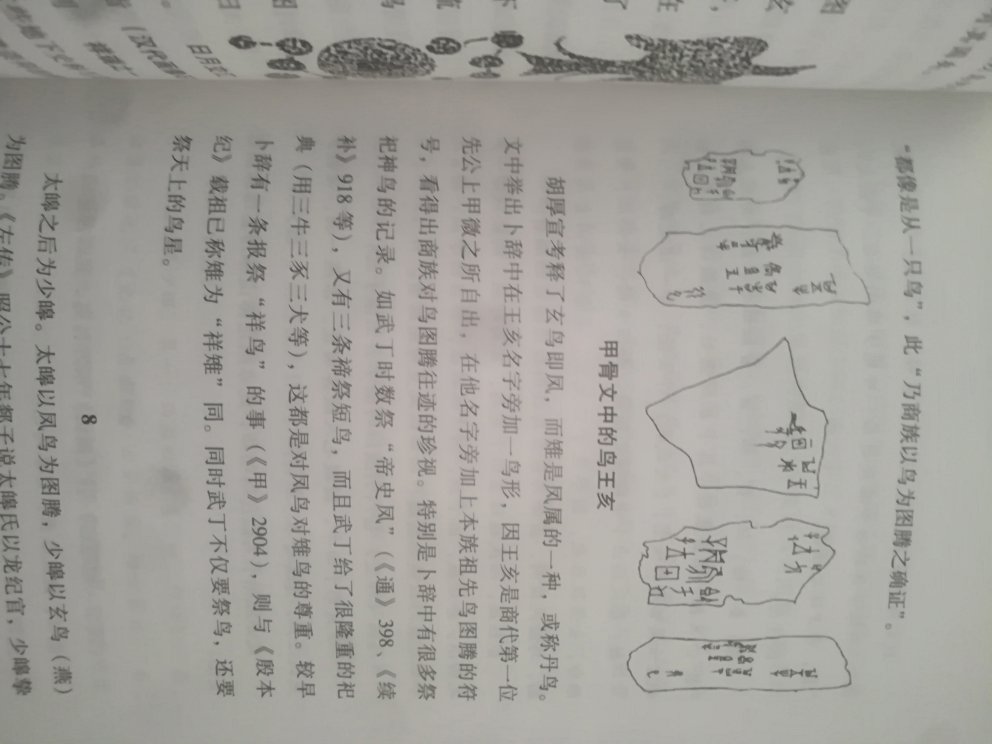 "都像是从一只鸟"，此"乃商族以鸟为图腾之确证"。
甲骨文中的鸟王亥
胡厚宣考释了玄鸟即凤，而雉是凤属的一种，或称丹鸟。
文中举出卜辞中在王亥名字旁加一鸟形，因王亥是商代第一位
先公上甲微之所自出，在他名字旁加上本族祖先鸟图腾的符
号，看得出商族对鸟图腾往迹的珍视。特别是卜辞中有很多祭
祀神鸟的记录。如武丁时数祭"帝史凤"（《通》398、《续
补》918等），又有三条禘祭短鸟，而且武丁给了很隆重的祀
典（用三牛三豕三犬等），这都是对凤鸟对雉鸟的尊重。较早
卜辞有一条报祭"祥鸟"的事（《甲》2904），则与《殷本
纪》载祖已称雉为"祥雉"同。同时武丁不仅要祭鸟，还要
祭天上的鸟星。
8
太皞之后为少皞。太皞以凤鸟为图腾，少皞以玄鸟（燕）
为图腾。《左传》昭公十七年郯子说太皞氏以龙纪官，少皞挚